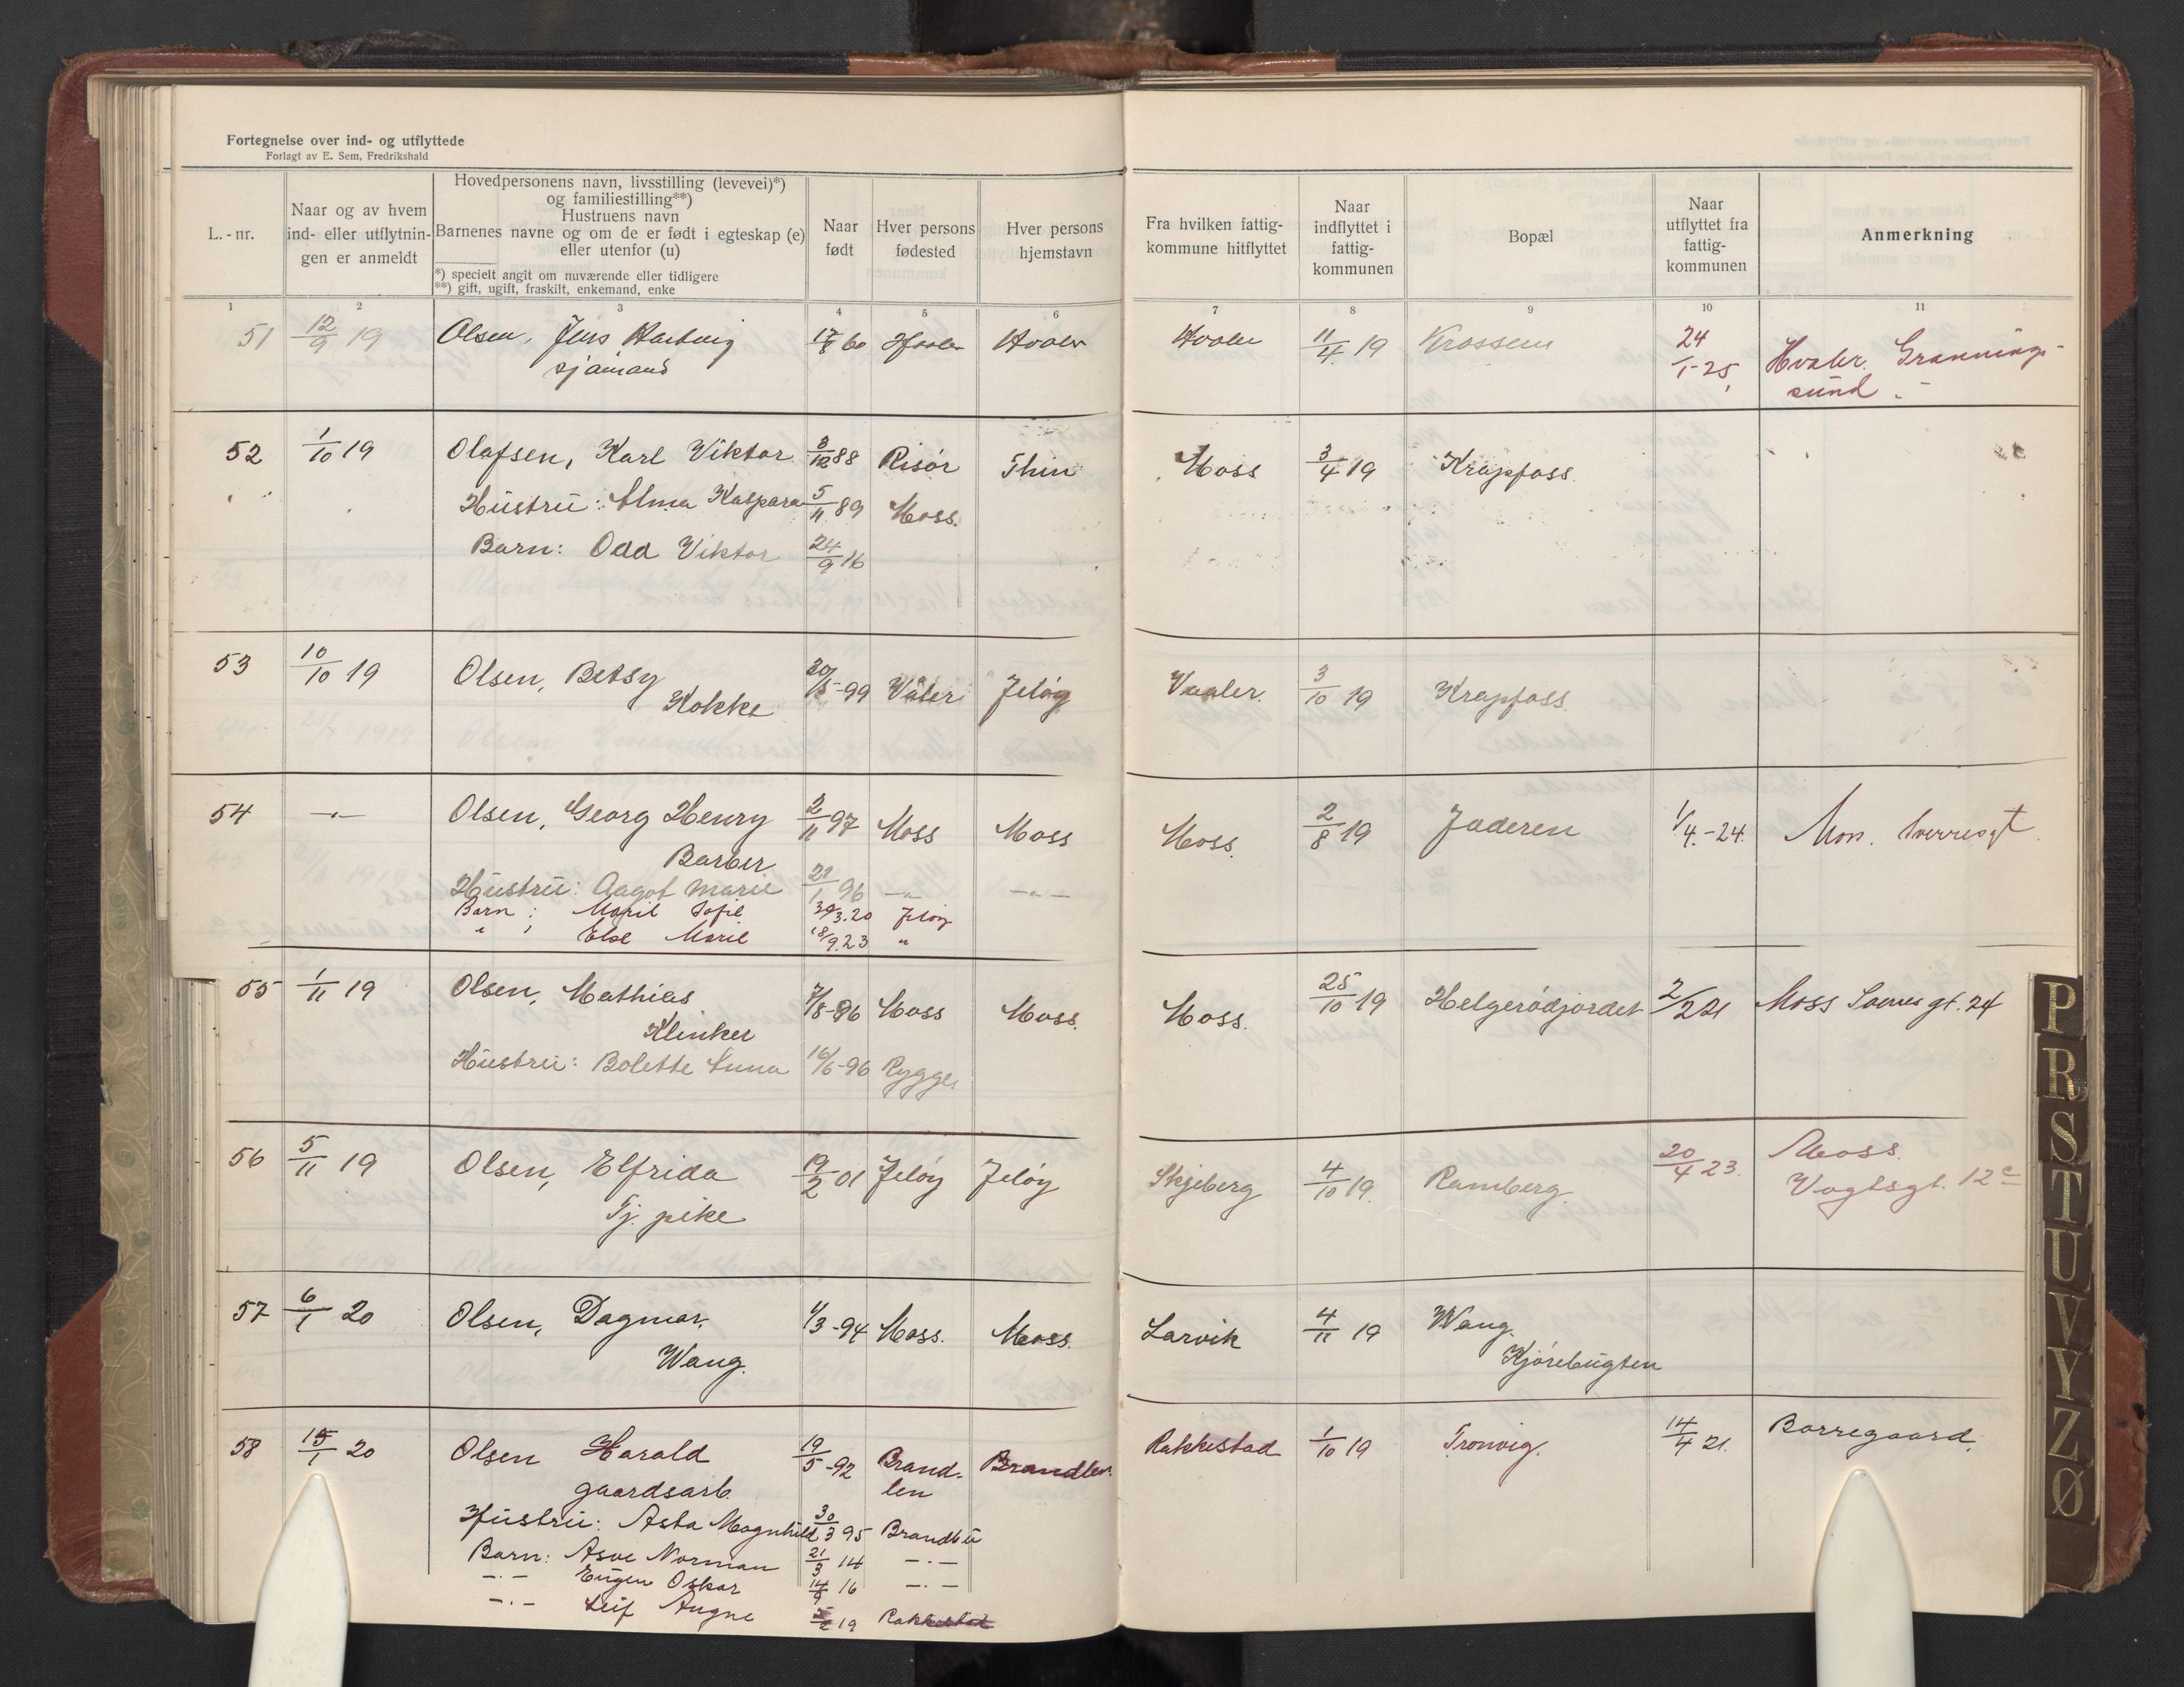 Fortegnelse over ind- og utflyttede
Forlagt av E. Sem, Fredrikshald
L.-nr.
Naar og av hvem
ind- eller utflytnin-
gen er anmeldt
Hovedpersonens navn, livsstilling (levevei)*)
og familiestilling**)
Hustruens navn
Barnenes navne og om de er født i egteskap (e)
eller utenfor (u)
*) specielt angit om nuværende eller tidligere
**) gift, ugift, fraskilt, enkemand, enke
Naar
født
Hver persons
fødested
Hver persons
hjemstavn
Fra hvilken fattig-
kommune hitflyttet
Naar
indflyttet i
fattig-
kommunen
Bopæl
Naar
utflyttet fra
fattig-
kommunen
Anmerkning
1 2 3 4 5 6 7 8 9 10 11
51 12/9 19 Olsen, Jens Hartvig 60 Hvaler Hvaler Hvaler 11/4 19 Krossern 24/1-25, Hvaler. Grønning-
sjømand sund.
52 1/10 19 Olafsen, Karl Viktor 88 Risør Moss 3/4 19 Krapfoss.
Hustru: Alma Kaspara 5/11 89 Moss.
Barn: Odd Viktor 24/9 16
53 10/10 19 Olsen, Betsy 20/5-99 Våler Jeløy Vaaler. 3/10 19 Krapfoss.
Kokke
54 —"— Olsen, Georg Henry 2/11 97 Moss Moss Moss. 2/8 19 Jaderen 1/4-24. Mon.
Barber
Hustru: Aagot Marie 96 —"— —"—
Barn: Maril Sofie 3.20 Jeløy
" ; Else Marie 18/9.23 "
55 1/11 19 Olsen, Mathias 7/8-96 Moss Moss. Moss. 25/10 19 Helgerødjordet 2/2 21 Moss gt. 24
Klinker
Hustru: Bolette Anna 16/6-96 Rygge,
56 5/11 19 Olsen, Elfrida 19/2 01 Jeløy Jeløy Skjeberg 4/10 19. Ramberg. 20/4 23. Moss.
Tj. pike Vogtsgt. 12c
57 6/1 20 Olsen, Dagmar, 1/3-94 Moss. Moss. Larvik 4/11 19 Wang.
Wang. Kjørebugten
58 15/1 20 Olsen Harald 19/5-92 Brand- Brandbu. Rakkestad 1/10 19 Tronvig. 14/4 21. Borregaard.
gaardsarb. ben
Hustru: Asta Magnhild 30/3 95 Brandbu
Barn: Asve Norman 21/3 14 —"—
—"— Eugen Oskar 16 —"—
—"— Leif Augne 19 Rakkestad
P
R
S
T
U
V
Y
Z
Ø